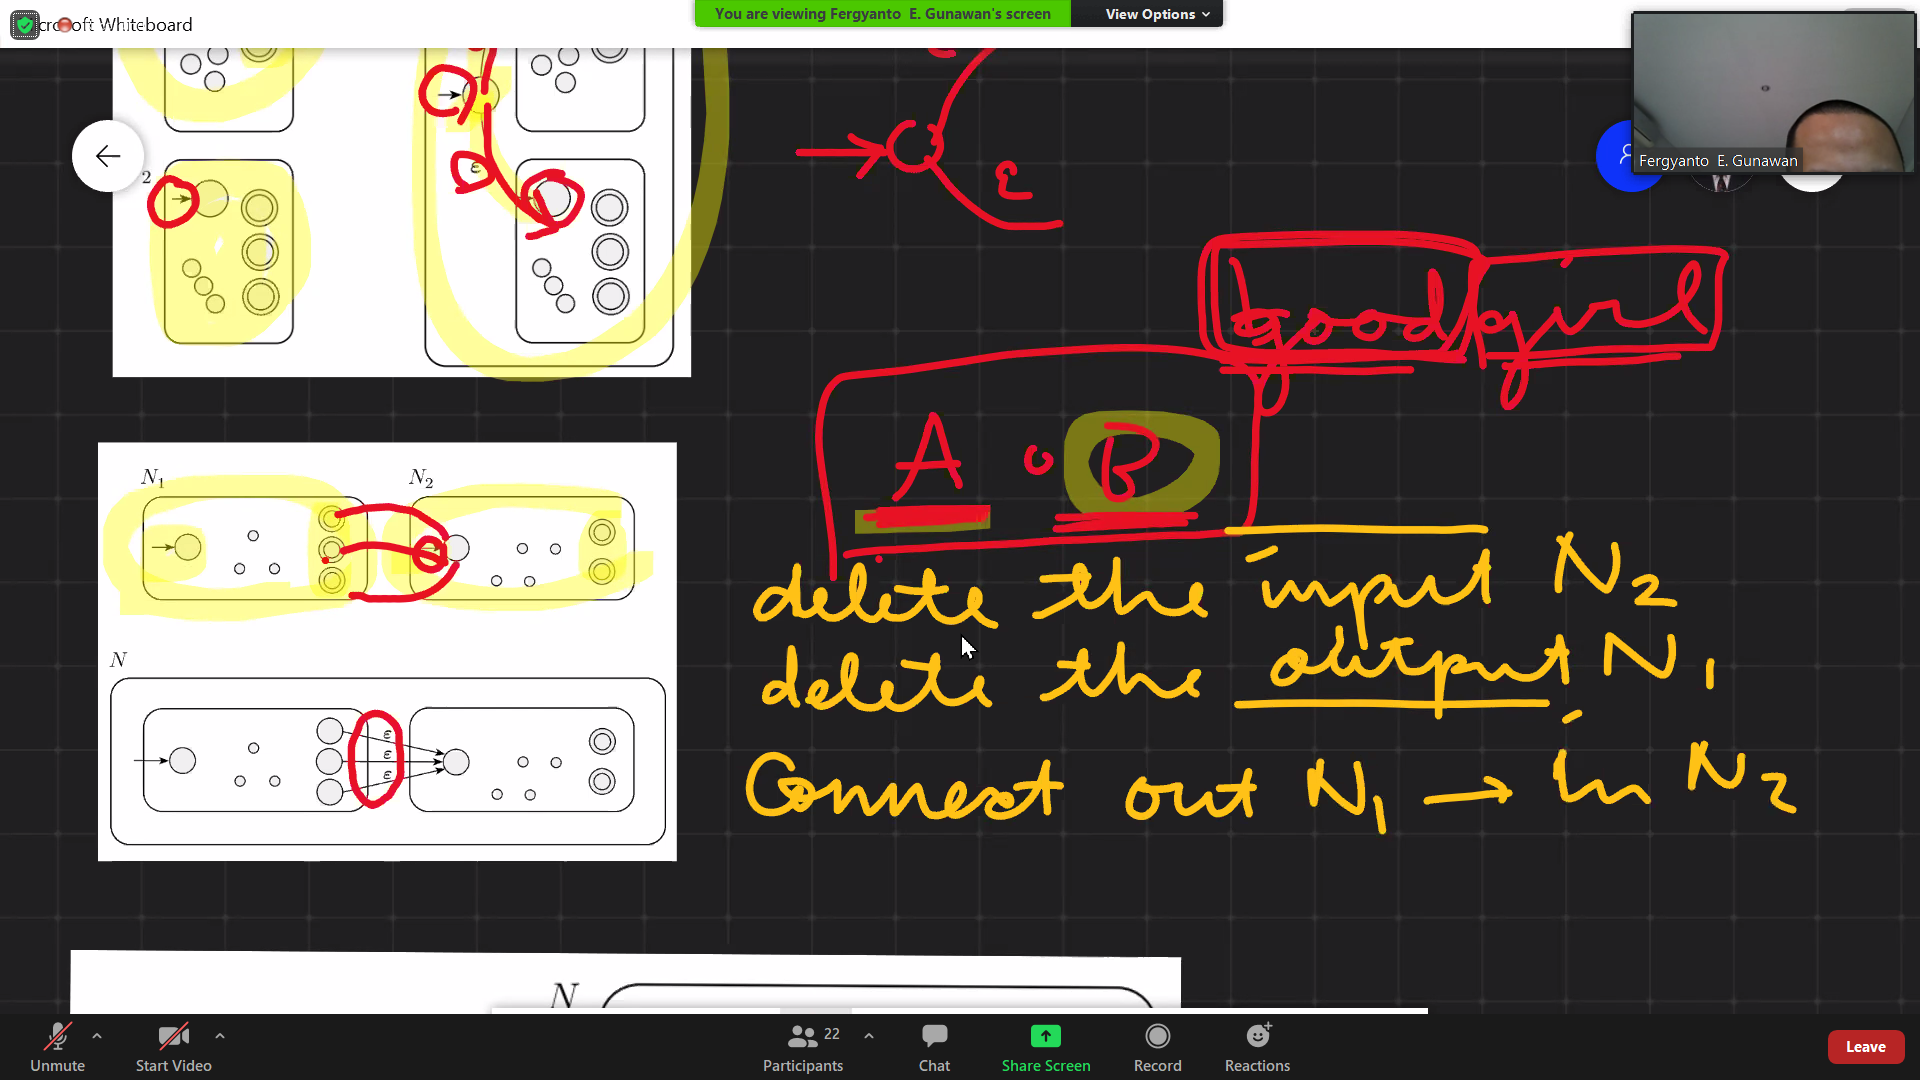 Microsoft Whiteboard
You are viewing Fergyanto E. Gunawan's screen
View Options
Fergyanto E. Gunawan
2
ε
ε
good girl
A ∘ B
N1
N2
delete the input N2
delete the output N1
N
ε
ε
ε
Connext out N1 → in N2
N
Unmute
Start Video
22
Participants
Chat
Share Screen
Record
Reactions
Leave